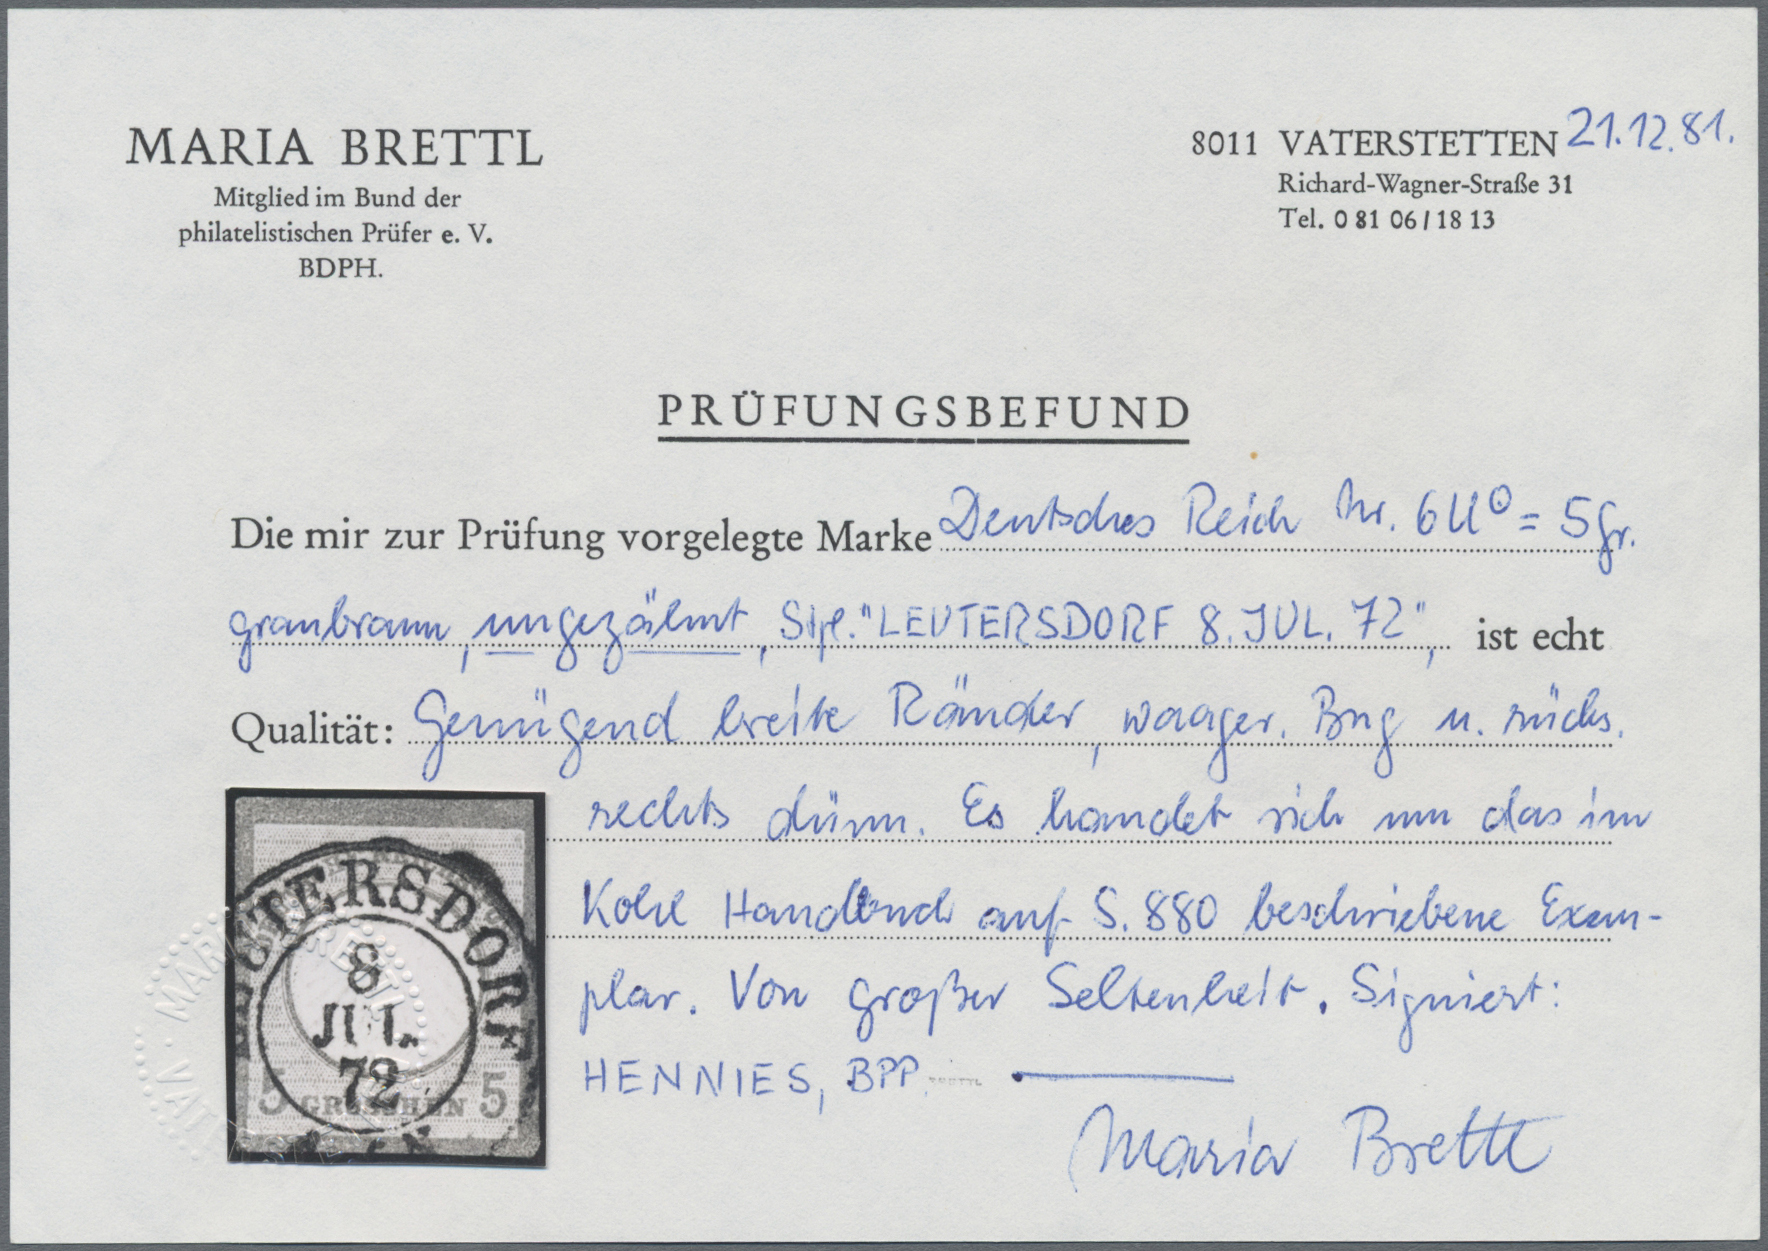 MARIA BRETTL
Mitglied im Bund der
philatelistischen Prüfer e. V.
BDPH.
8011 VATERSTETTEN 21.12.81.
Richard-Wagner-Straße 31
Tel. 0 81 06 / 18 13
PRÜFUNGSBEFUND
Die mir zur Prüfung vorgelegte Marke Deutsches Reich Nr. 6U⊙ = 5 Gr.
graubraun, ungezähnt, Stpl. "LEUTERSDORF 8. JUL. 72", ist echt
Qualität: Genügend breite Ränder, waager. Bug u. rücks.
rechts dünn. Es handet sich um das im
Kohl Handbuch auf S. 880 beschriebene Exem-
plar. Von großer Seltenheit. Signiert:
HENNIES, BPP. BRETTL
Maria Brettl
LEUTERSDORF
8
JUL.
72
5 GROSCHEN 5